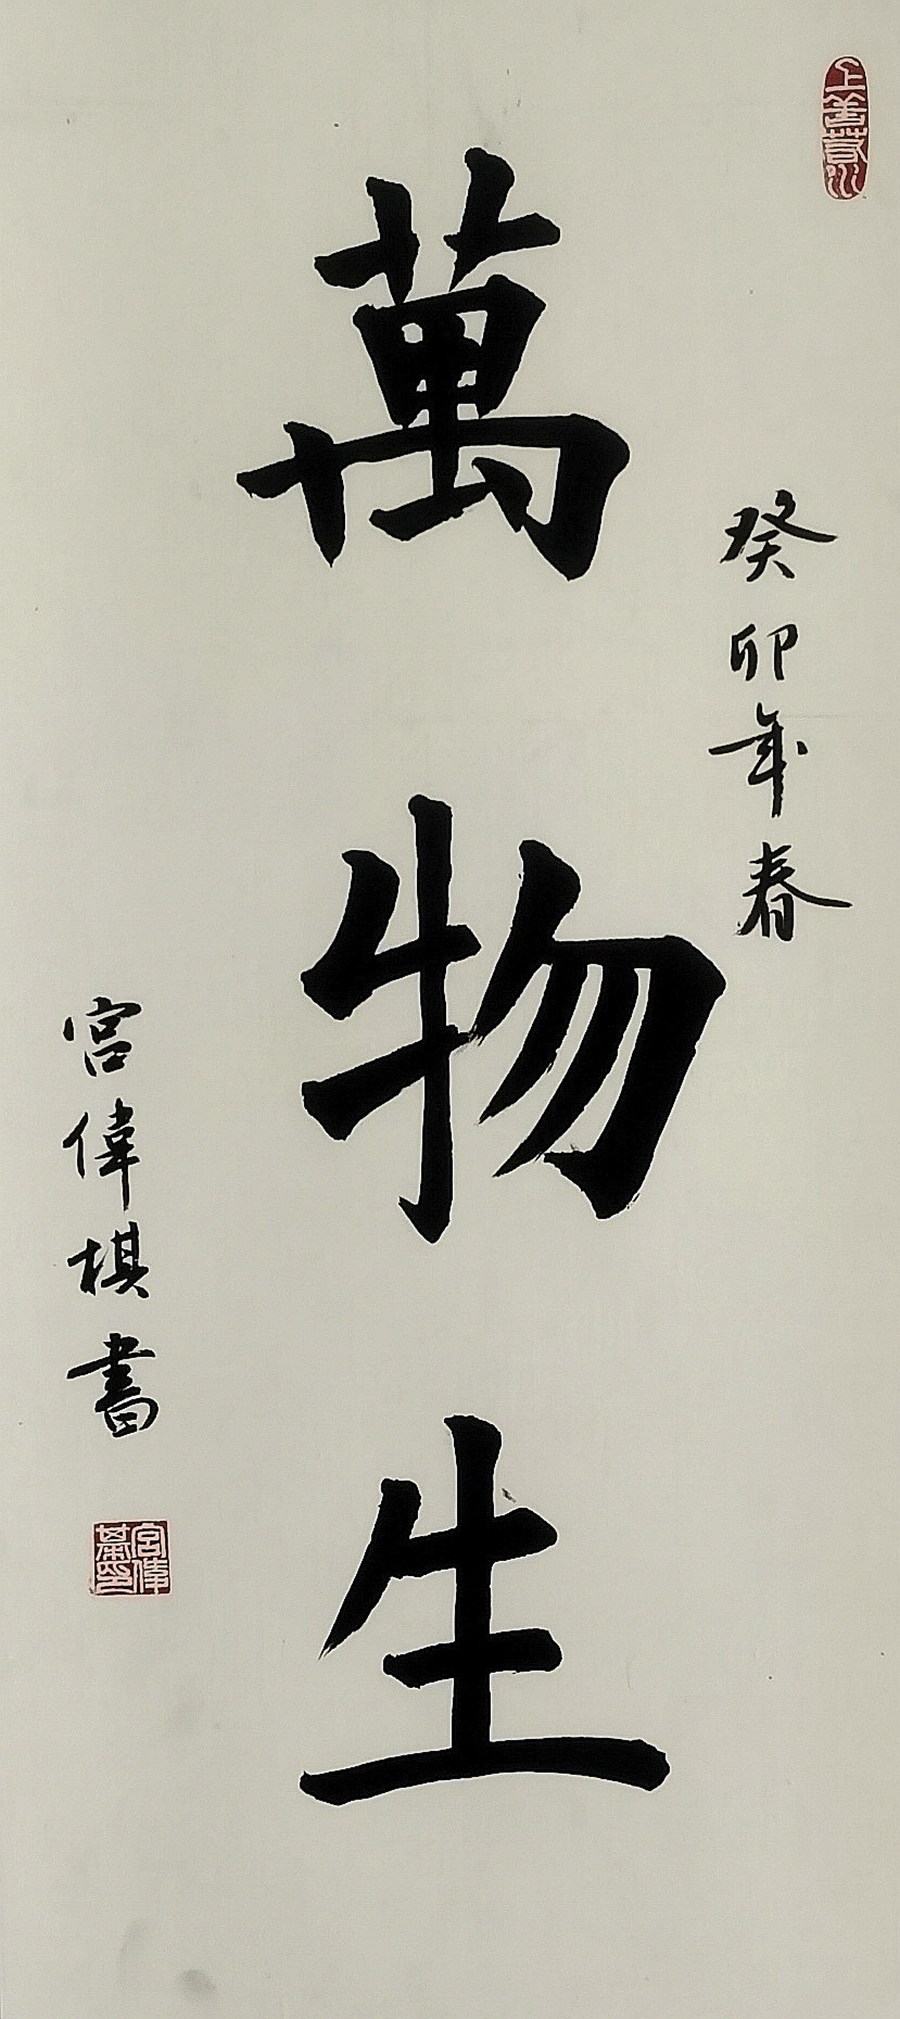 上善若水
癸卯年春
萬物生
宮偉棋書
宮偉棋印